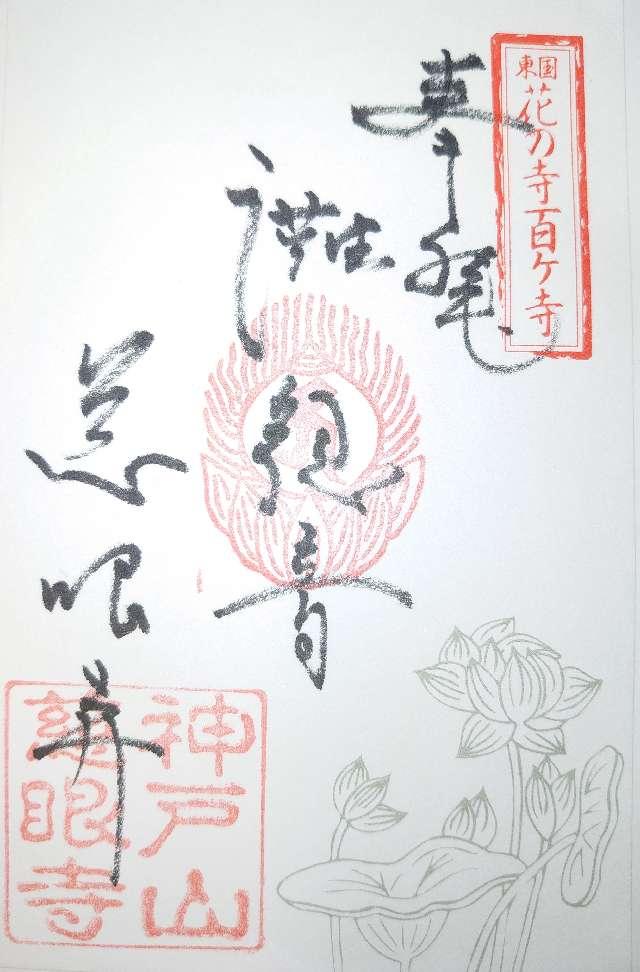 東国花の寺百ケ寺
奉拝
観音
慈眼寺
神戸山
慈眼寺